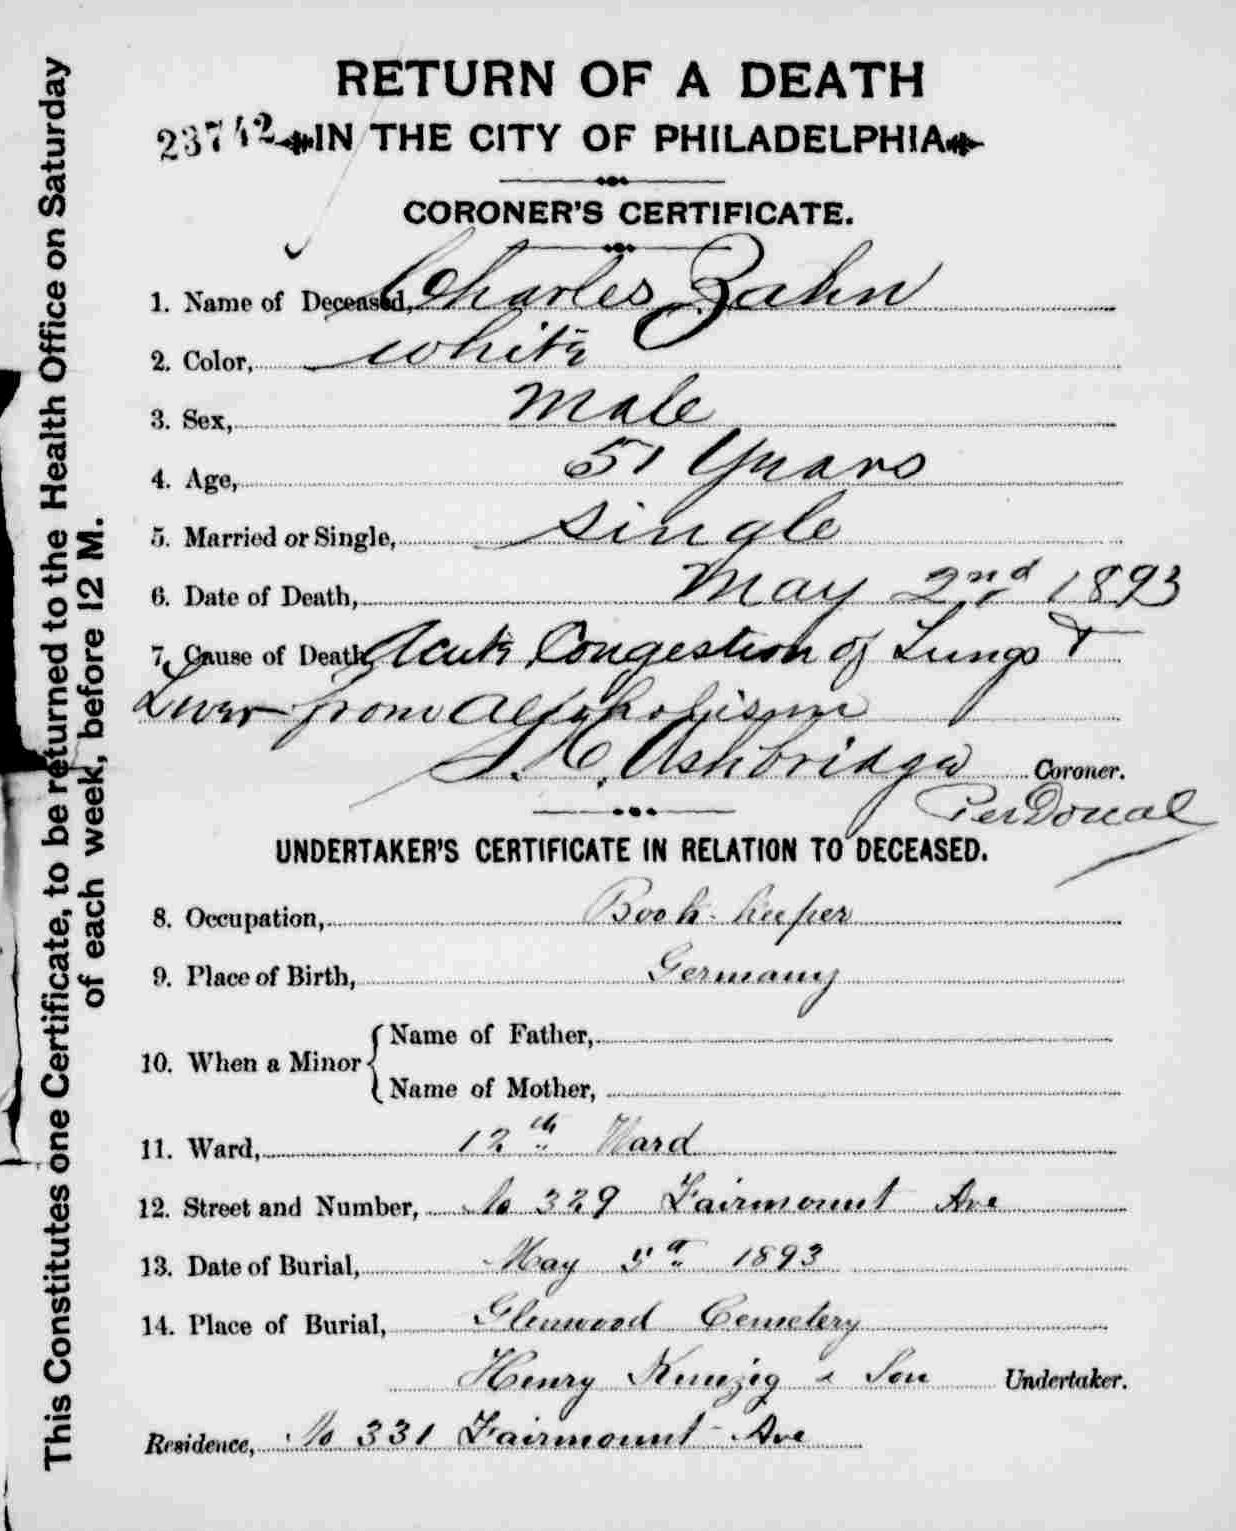 RETURN OF A DEATH
23742 IN THE CITY OF PHILADELPHIA
CORONER'S CERTIFICATE.
1. Name of Deceased, Charles Zahn
2. Color, White
3. Sex, Male
4. Age, 51 Years
5. Married or Single, Single
6. Date of Death, May 2nd 1893
7. Cause of Death, Acute Congestion of Lungs &
Liver from Alcoholism
S. H. Ashbridge Coroner.
Per
UNDERTAKER'S CERTIFICATE IN RELATION TO DECEASED.
8. Occupation, Book-keeper
9. Place of Birth, Germany
10. When a Minor { Name of Father,
Name of Mother,
11. Ward, 12th Ward
12. Street and Number, No 329 Fairmount Ave
13. Date of Burial, May 5th 1893
14. Place of Burial, Glenwood Cemetery
Henry Kunzig & Son Undertaker.
Residence, No 331 Fairmount Ave
This Constitutes one Certificate, to be returned to the Health Office on Saturday
of each week, before 12 M.